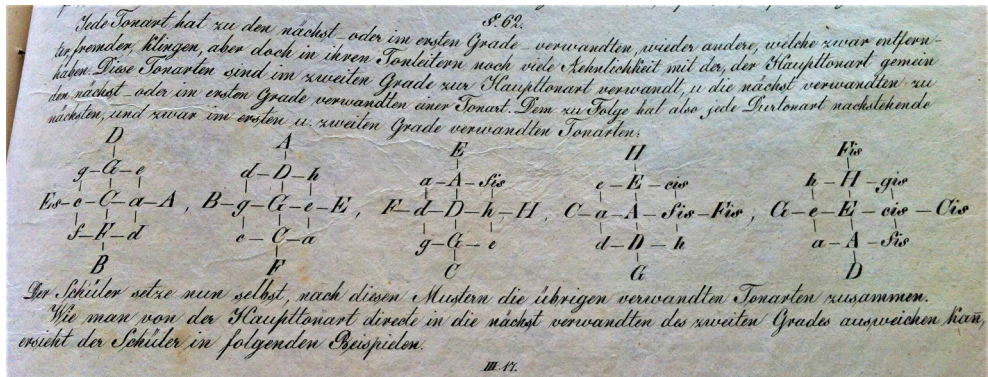 §. 62.
Jede Tonart hat zu den nächst- oder im ersten Grade - verwandten, wieder andere, welche zwar entfern-
ter, fremder, klingen, aber doch in ihren Tonleitern noch viele Aehnlichkeit mit der, der Haupttonart gemein
haben. Diese Tonarten sind im zweiten Grade zur Haupttonart verwandt, u die nächst verwandten zu
den nächst- oder im ersten Grade verwandten einer Tonart. Dem zu Folge hat also jede Durtonart nachstehende
nächsten, und zwar im ersten u. zweiten Grade verwandten Tonarten:
D A E H Fis
g-G-e d-D-h a-A-fis e-E-cis h-H-gis
Es-c-C-a-A, B-g-G-e-E, F-d-D-h-H, C-a-A-fis-Fis, G-e-E-cis-Cis
f-F-d c-C-a g-G-e d-D-h a-A-fis
B F C G D
Der Schüler setze nun selbst, nach diesen Mustern die übrigen verwandten Tonarten zusammen.
Wie man von der Haupttonart directe in die nächst verwandten des zweiten Grades ausweichen kañ,
ersieht der Schüler in folgenden Beispielen.
III. 17.